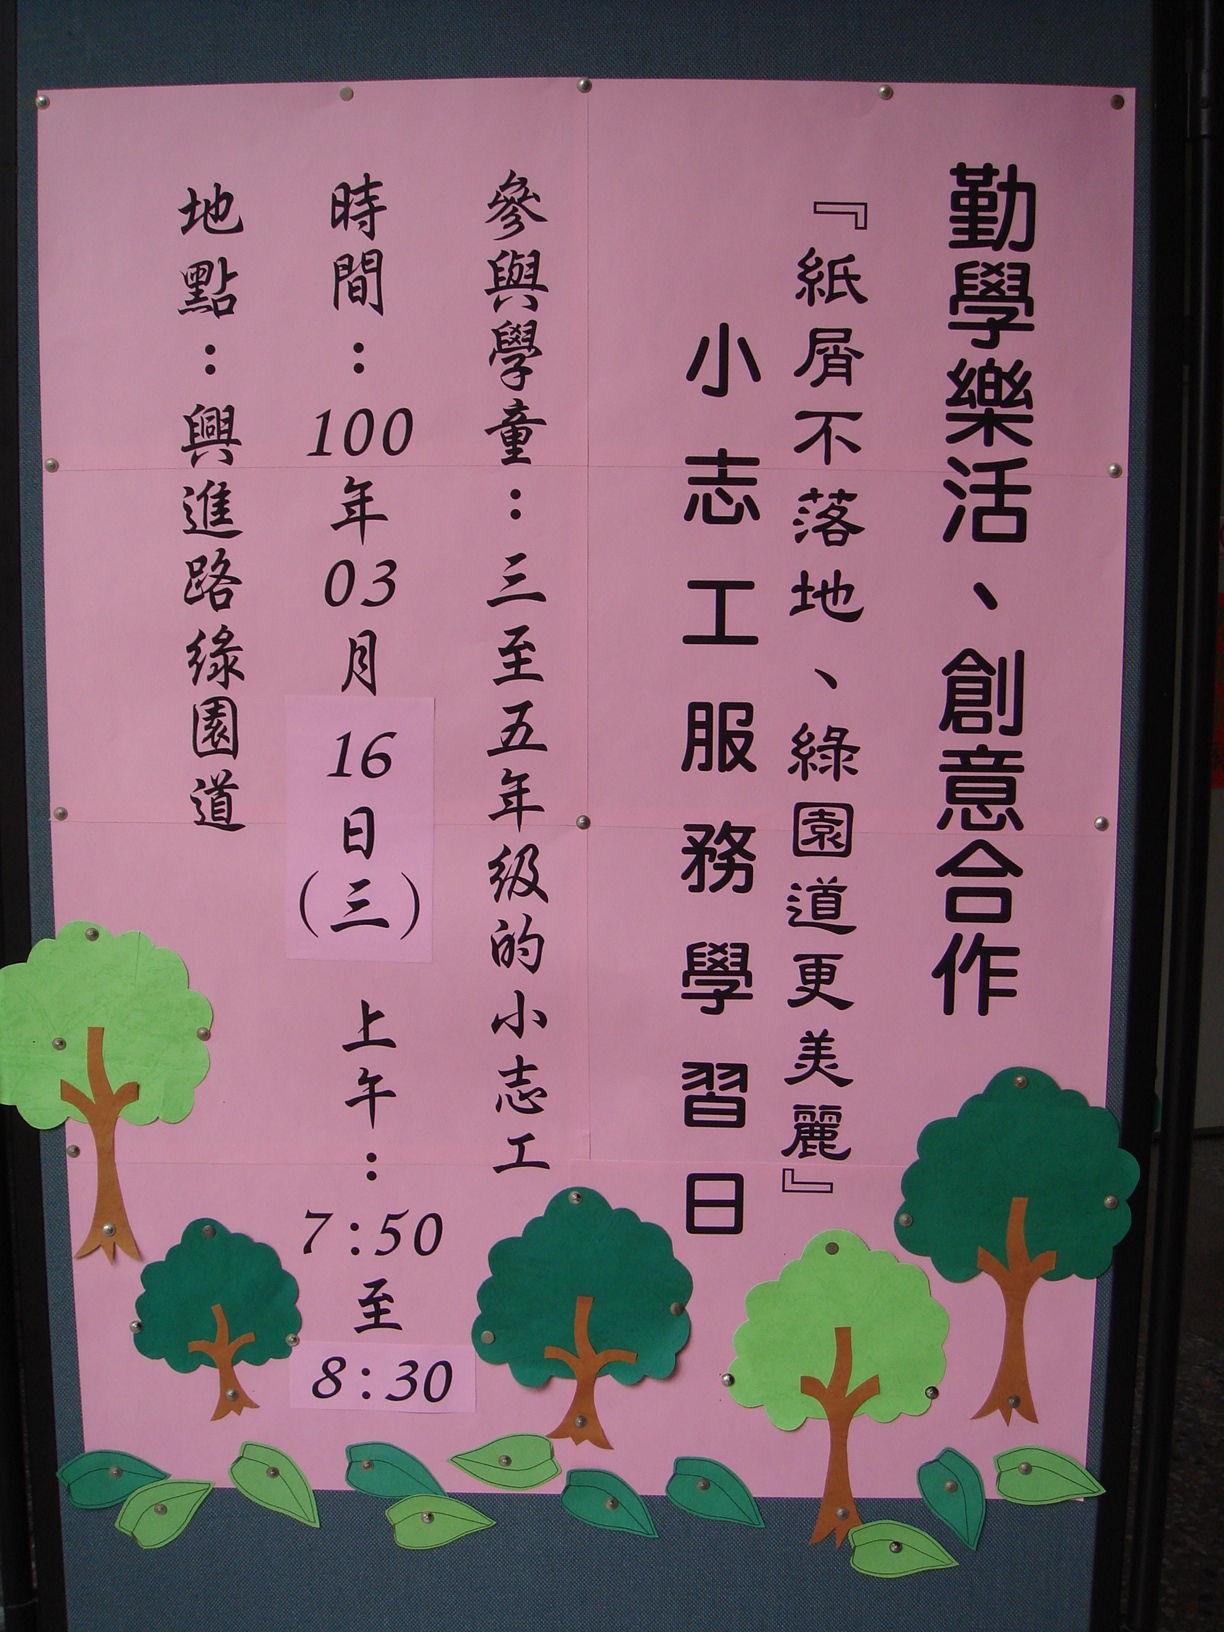 勤學樂活、創意合作
『紙屑不落地、綠園道更美麗』
小志工服務學習日
參與學童：三至五年級的小志工
時間：100年03月16日(三) 上午：7:50至8:30
地點：興進路綠園道